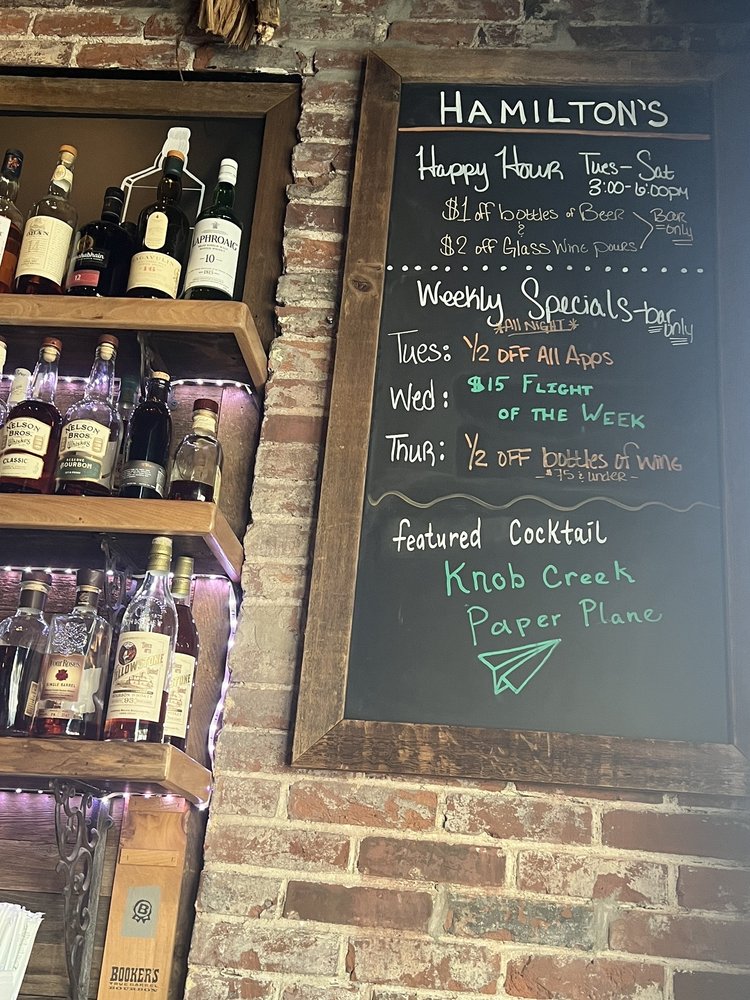 HAMILTON'S
Happy Hour Tues-Sat
3:00-6:00pm
$1 off bottles of Beer
&
$2 off Glass Wine pours
Bar
only
Weekly Specials-bar
only
*All NIGHT*
Tues: 1/2 OFF All Apps
Wed: $15 FLIGHT
OF THE WEEK
Thur: 1/2 OFF bottles of wine
- $75 & under -
featured Cocktail
Knob Creek
Paper Plane
LAPHROAIG
10
12
NELSON
BROS.
Whiskey
CLASSIC
NELSON
BROS.
Whiskey
RESERVE
BOURBON
Four Roses
SINGLE BARREL
YELLOWSTONE
93
B
BOOKER'S
TRUE BARREL
BOURBON